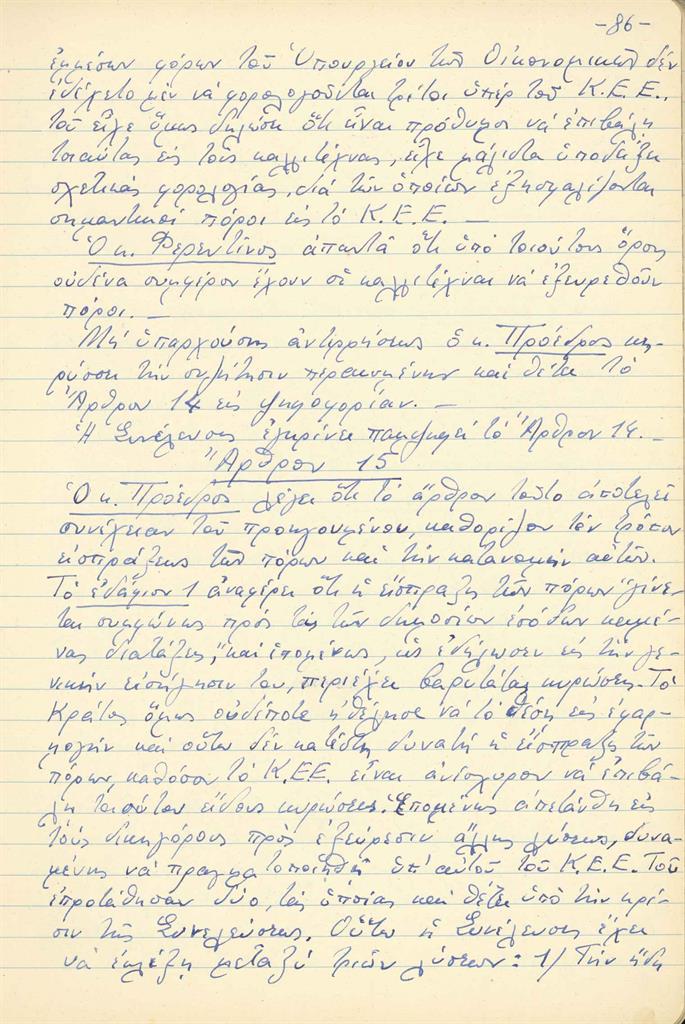 -86-
ἐμμέσων φόρων τοῦ Ὑπουργείου τῶν Οἰκονομικῶν δὲν
ἐδέχετο μὲν νὰ φορολογοῦνται τρίτοι ὑπὲρ τοῦ Κ.Ε.Ε.,
τοῦ εἶχε ὅμως δηλώσει ὅτι εἶναι πρόθυμοι νὰ ἐπιβάλῃ
τοιαύτας εἰς τοὺς καλλιτέχνας, εἶχε μάλιστα ὑποδείξει
σχετικὰς φορολογίας, διὰ τῶν ὁποίων ἐξησφαλίζοντο
σημαντικοὶ πόροι εἰς τὸ Κ.Ε.Ε. —
Ὁ κ. Φερεντῖνος ἀπαντᾶ ὅτι ὑπὸ τοιούτους ὅρους
οὐδένα συμφέρον ἔχουν οἱ καλλιτέχναι νὰ ἐξευρεθοῦν
πόροι. —
Μὴ ὑπαρχούσης ἀντιρρήσεως ὁ κ. Πρόεδρος κη-
ρύσσει τὴν συζήτησιν περαιωμένην καὶ θέτει τὸ
Ἄρθρον 14 εἰς ψηφοφορίαν. —
Ἡ Συνέλευσις ἐγκρίνει παμψηφεὶ τὸ Ἄρθρον 14. —
Ἄρθρον 15
Ὁ κ. Πρόεδρος λέγει ὅτι τὸ ἄρθρον τοῦτο ἀποτελεῖ
συνέχειαν τοῦ προηγουμένου, καθορίζον τὸν τρόπον
εἰσπράξεως τῶν πόρων καὶ τὴν κατανομὴν αὐτῶν.
Τὸ ἐδάφιον 1 ἀναφέρει ὅτι ἡ εἴσπραξις τῶν πόρων "γίνε-
ται συμφώνως πρὸς τὰς τῶν δημοσίων ἐσόδων κειμέ-
νας διατάξεις," καὶ ἑπομένως, ὡς ἐδήλωσεν εἰς τὴν γε-
νικὴν εἰσήγησίν του, περιέχει βαρυτάτας κυρώσεις. Τὸ
Κράτος ὅμως οὐδέποτε ἠθέλησε νὰ τὸ θέσῃ εἰς ἐφαρ-
μογὴν καὶ οὕτω δὲν κατέστη δυνατὴ ἡ εἴσπραξις τῶν
πόρων, καθόσον τὸ Κ.Ε.Ε. εἶναι ἀνίσχυρον νὰ ἐπιβά-
λῃ τοιούτου εἴδους κυρώσεις. Ἑπομένως ἀπετάνθη εἰς
τοὺς δικηγόρους πρὸς ἐξεύρεσιν ἄλλης λύσεως, δυνα-
μένης νὰ πραγματοποιηθῇ ὑπ' αὐτοῦ τοῦ Κ.Ε.Ε. Τοῦ
ἐπροτάθησαν δύο, τὰς ὁποίας καὶ θέτει ὑπὸ τὴν κρί-
σιν τῆς Συνελεύσεως. Οὕτω ἡ Συνέλευσις ἔχει
νὰ ἐκλέξῃ μεταξὺ τριῶν λύσεων: 1/ Τὴν ἤδη